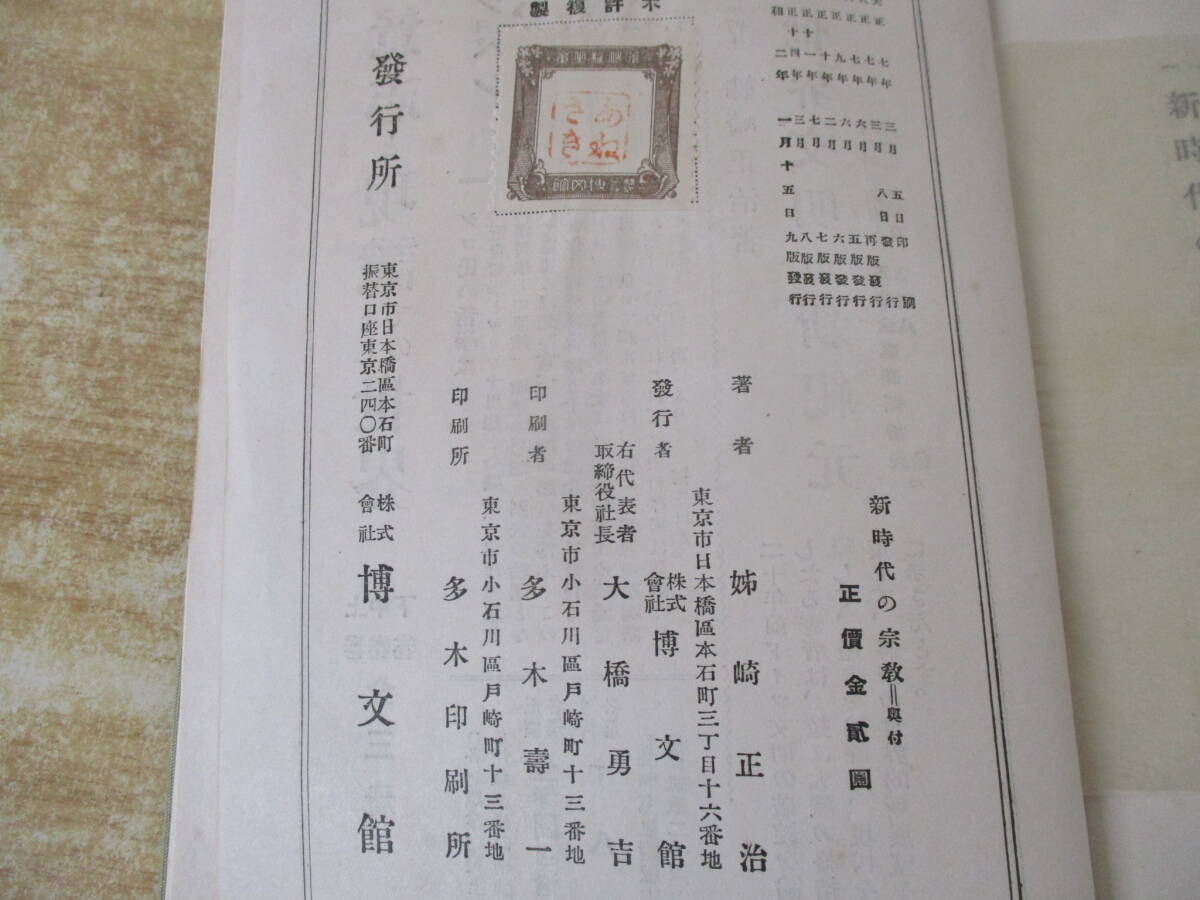 正七年三月五日印刷
七年三月八日發行
正七年六月再版發行
正九年六月五版發行
正十年二月六版發行
正十一年七月七版發行
正十四年三月八版發行
和二年一月十五日九版發行
新時代の宗教＝奧付
正價金貳圓
不許複製
あねさき
著者 姊崎正治
東京市日本橋區本石町三丁目十六番地
發行者 株式會社 博文館
右代表者
取締役社長 大橋勇吉
東京市小石川區戸崎町十三番地
印刷者 多木壽一
東京市小石川區戸崎町十三番地
印刷所 多木印刷所
發行所
東京市日本橋區本石町
振替口座東京二四〇番
株式會社 博文館
新時代の